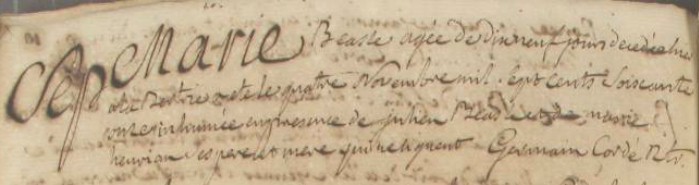 Sep Marie Beasse agée de dix neuf jours decedée hier
a la Bertrie a été le quatre Novembre mil sept cents soixante
onze inhumée en presence de julien Beasse et de marie
henriau ses pere et mere qui ne signent Germain Cordé Rtr.